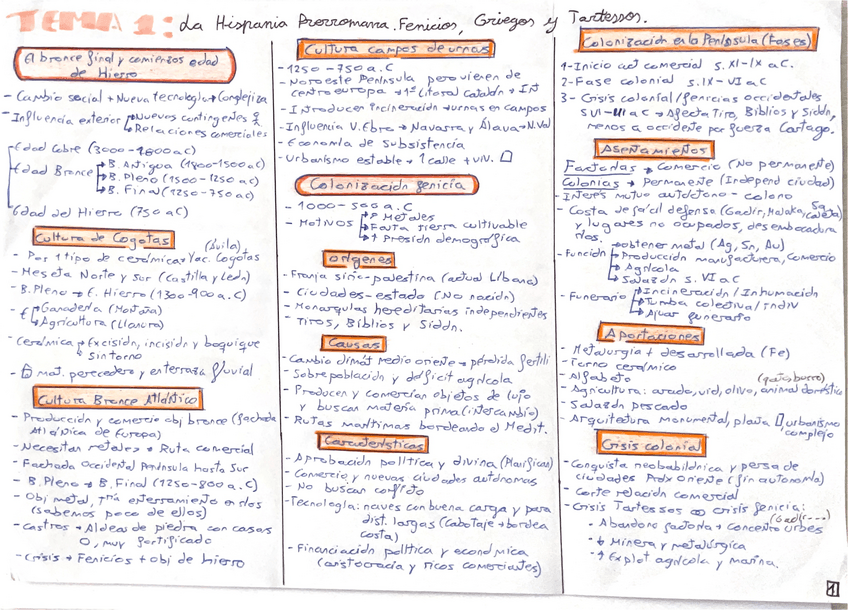 TEMA 1: La Hispania Prerromana. Fenicios, Griegos y Tartessos.
El bronce final y comienzos edad
de Hierro
- Cambio social + Nueva tecnología → Complejiza
- Influencia exterior → Nuevos contingentes
→ Relaciones comerciales
Edad Cobre (3000-1800 a.C)
Edad Bronce → B. Antigua (1800-1500 a.C)
→ B. Pleno (1500-1250 a.C)
→ B. Final (1250-750 a.C)
Edad del Hierro (750 a.C)
Cultura de Cogotas
(Ávila)
- Por 1 tipo de cerámica, Yac. Cogotas
- Meseta Norte y Sur (Castilla y León)
- B. Pleno → E. Hierro (1300-900 a.C)
- € → Ganadería (Montaña)
→ Agricultura (Llanura)
- Cerámica → Excisión, incisión y boquique
→ Sin torno
- mat. perecedero y enterraza fluvial
Cultura Bronce Atlántico
- Producción y comercio obj bronce (fachada
Atlántica de Europa)
- Necesitan metales → Ruta comercial
- Fachada Occidental Península hasta Sur
- B. Pleno → B. Final (1250-800 a.C)
- Obj metal, Tma enterramiento en ríos
(sabemos poco de ellos)
- Castros → Aldeas de piedra con casas
O, muy fortificado
- Crisis → Fenicios + obj de hierro
Cultura campos de urnas
- 1250-750 a.C
- Noroeste Península pero vienen de
centroeuropa → 1º Litoral Catalán → Int
- Introducen incineración → urnas en campos
- Influencia V. Ebro → Navarra y Álava → N. Val
- Economía de Subsistencia
- Urbanismo estable → 1 calle + viv.
Colonización fenicia
- 1000-500 a.C
- Motivos → Metales
→ Falta tierra cultivable
→ ↑ Presión demográfica
Orígenes
- Franja sirio-palestina (actual Líbano)
- Ciudades-estado (No nación)
- Monarquías hereditarias independientes
- Tiros, Biblos y Sidón.
Causas
- Cambio climát Medio oriente → pérdida fertili
- Sobrepoblación y déficit agrícola
- Producen y comercian objetos de lujo
y buscan materia prima (intercambio)
- Rutas marítimas bordeando el Medit.
Características
- Aprobación política y divina (Planifican)
- Comercio y nuevas ciudades autónomas
- No buscan conflicto
- Tecnología: naves con buena carga y para
dist. largas (cabotaje → bordea
costa)
- Financiación política y económica
(aristocracia y ricos comerciantes)
Colonización en la Península (Fases)
1- Inicio act comercial s. XI-IX a.C.
2- Fase colonial s. IX-VI a.C
3- Crisis colonial/fenicias occidentales
s VI-III a.C → Afecta Tiro, Biblos y Sidón,
menos a occidente por fuerza Cartago.
Asentamientos
Factorías → Comercio (No permanente)
Colonias → Permanente (Independ ciudad)
- Interés mutuo autóctono - colono
- Costa de fácil defensa (Gadir, Malaka, Sa caleta)
y lugares no ocupados, desembocadura
ríos.
- Función → obtener metal (Ag, Sn, Au)
→ Producción manufactura, comercio
→ Agrícola
→ Salazón s. VI a.C
- Funerario → Incineración / Inhumación
→ Tumba colectiva / indiv
→ Ajuar funerario
Aportaciones
- Metalurgia + desarrollada (Fe)
- Torno cerámico
- Alfabeto
(gato, burro)
- Agricultura: arado, vid, olivo, animal doméstico
- Salazón pescado
- Arquitectura monumental, planta, urbanismo
complejo
Crisis colonial
- Conquista neobabilónica y persa de
ciudades Próx Oriente (fin autonomía)
- Corte relación comercial
- Crisis Tartessos ∞ crisis fenicia:
(Gadir---)
- Abandono factoría + concentra urbes
- ↓ Minera y metalúrgica
- ↑ Explot agrícola y marina.
1